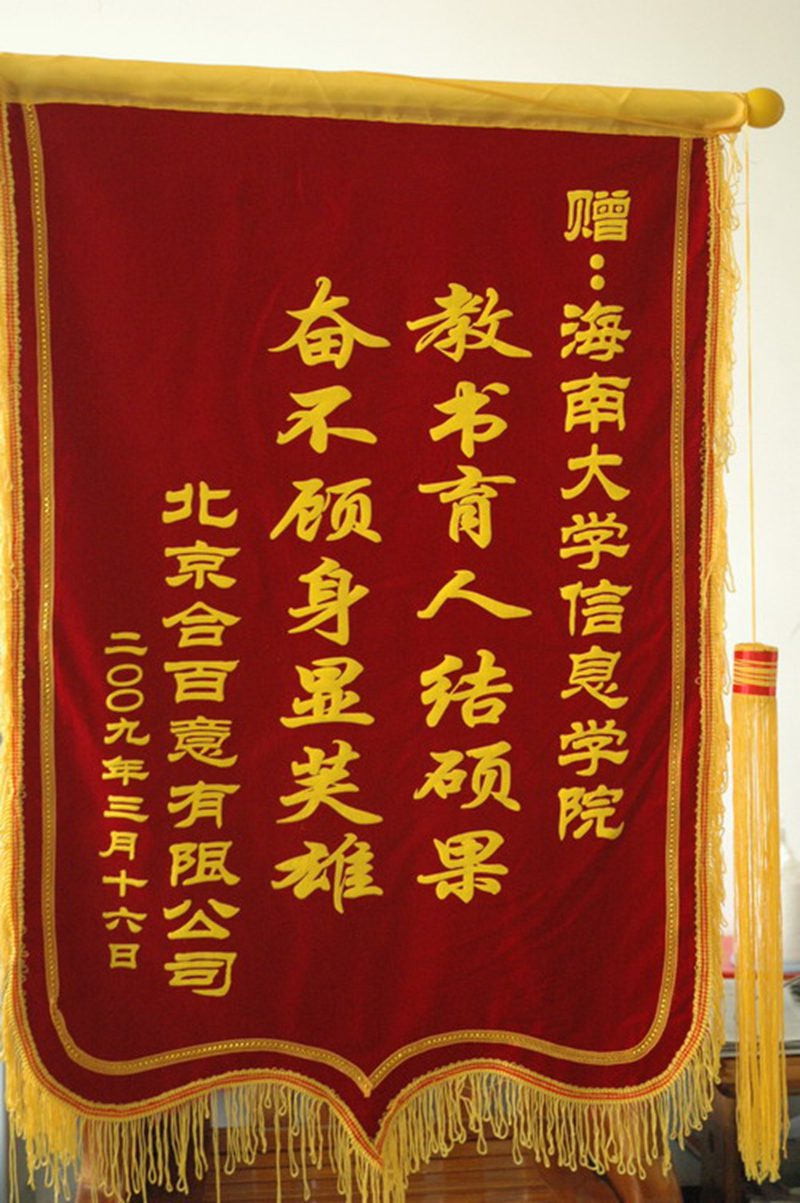 赠：海南大学信息学院
教书育人结硕果
奋不顾身显英雄
北京合百意有限公司
二〇〇九年三月十六日